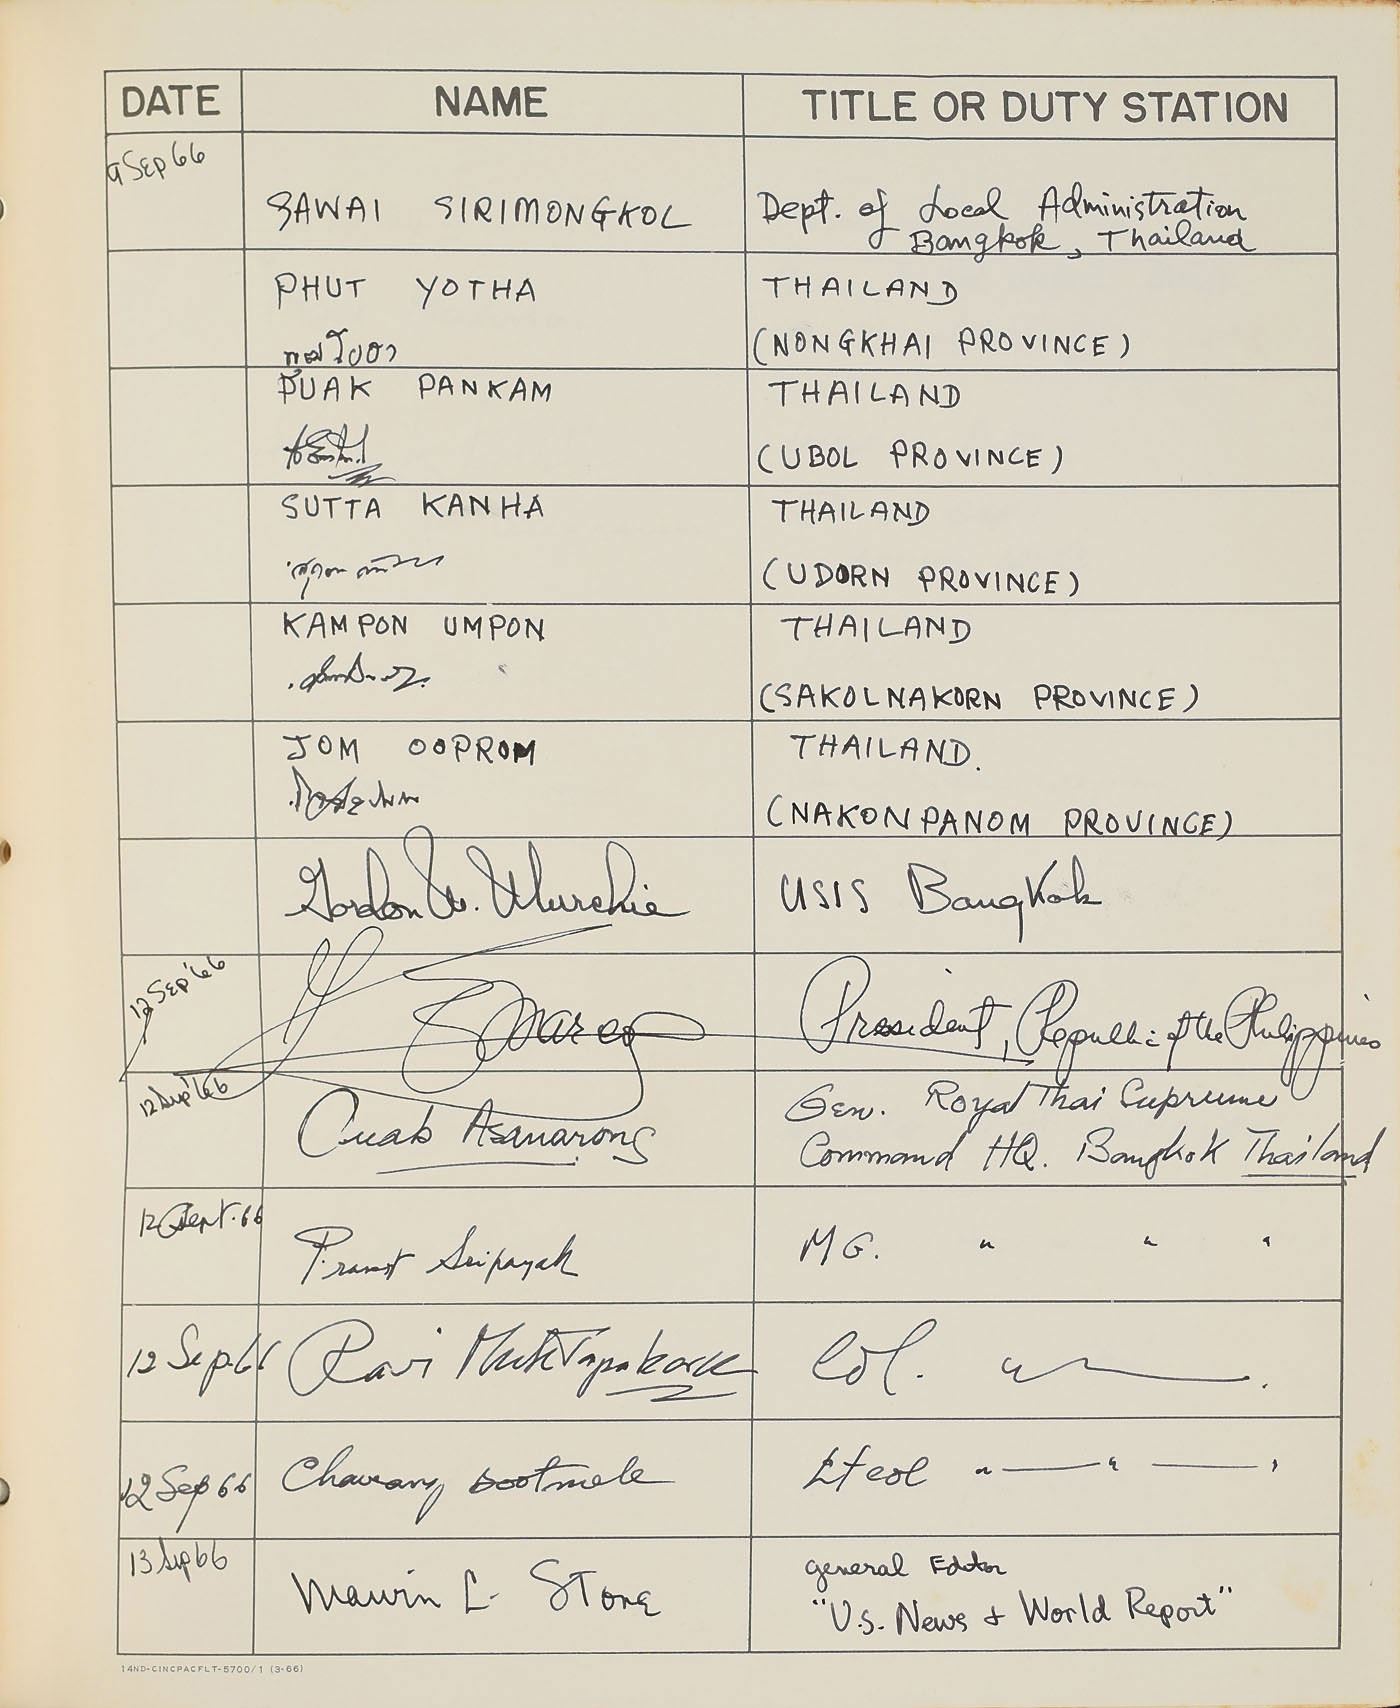 DATE NAME TITLE OR DUTY STATION
9 Sep 66
SAWAI SIRIMONGKOL Dept. of Local Administration
Bangkok, Thailand
PHUT YOTHA THAILAND
(NONGKHAI PROVINCE)
PUAK PANKAM THAILAND
(UBOL PROVINCE)
SUTTA KANHA THAILAND
(UDORN PROVINCE)
KAMPON UMPON THAILAND
(SAKOLNAKORN PROVINCE)
JOM OOPROM THAILAND.
(NAKONPANOM PROVINCE)
Gordon W. Murchie USIS Bangkok
12 Sep '66 Marcos President, Republic of the Philippines
12 Sep '66 Gen. Royal Thai Supreme
Cuab Asanarong Command HQ. Bangkok Thailand
12 Sept. 66 Sripayak MG. " " "
12 Sep. 66 Ravi Col. "
12 Sep 66 Lt col " "
13 Sep 66 general Editor
Marvin L. Stone "U.S. News & World Report"
14ND-CINCPACFLT-5700/1 (3-66)